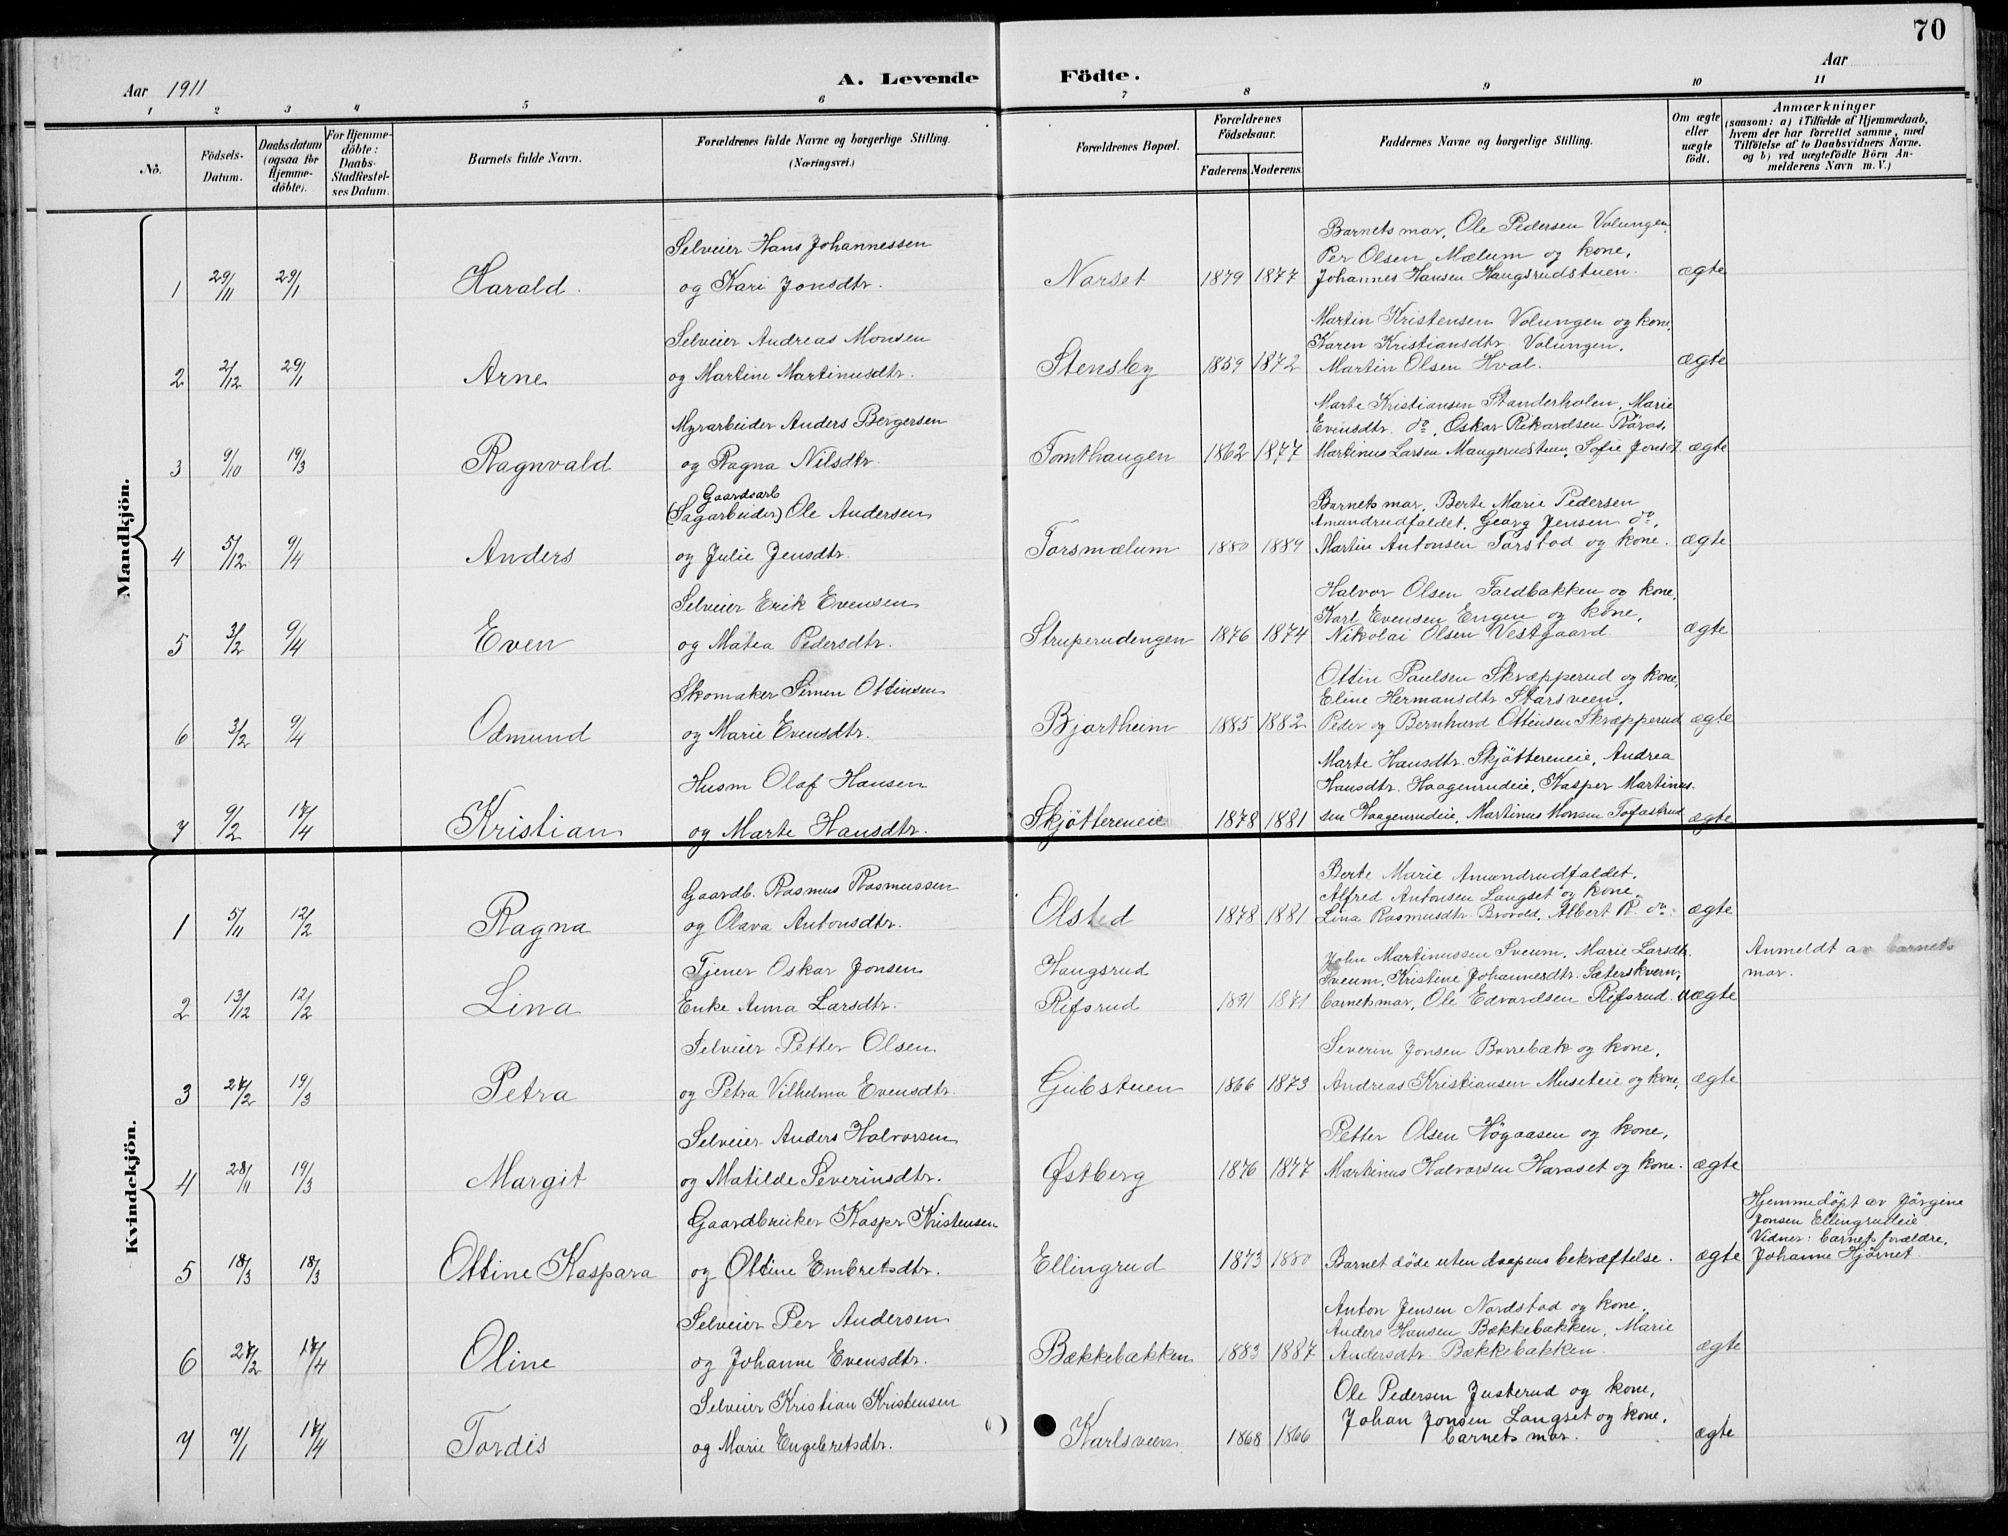 70
Aar 1911
A. Levende Födte.
Aar
1 2 3 4 5 6 7 8 9 10 11
No.
Födsels-Datum.
Daabsdatum (ogsaa for Hjemme-döbte).
For Hjemme-döbte: Daabs-Stadfæstel-ses Datum.
Barnets fulde Navn.
Forældrenes fulde Navne og borgerlige Stilling. (Næringsvei.)
Forældrenes Bopæl.
Forældrenes Födselsaar.
Faderens. Moderens.
Faddernes Navne og borgerlige Stilling.
Om ægte eller uægte födt.
Anmærkninger
(saasom: a) i Tilfælde af Hjemmedaab,
hvem der har forrettet samme, med
Tilföielse af to Daabsvidners Navne.
og b) ved uægtefödte Börn An-
melderens Navn m. V.)
Mandkjön.
1 29/11 29/1 Harald.
Selveier Hans Johannessen
og Kari Jonsdtr.
Norset 1879 1877
Barnets mor, Ole Pedersen Volungen,
Per Olsen Mælum og kone,
Johannes Hansen Haugsrudstuen.
ægte
2 2/12 29/1 Arne
Selveier Andreas Monsen
og Martine Martinusdtr.
Stensby 1859 1872
Martin Kristensen Volungen og kone,
Karen Kristiansdtr Volungen,
Martin Olsen Hval.
ægte
3 9/10 19/3 Ragnvald
Myrarbeider Anders Bergersen
og Ragna Nilsdtr.
Tomthaugen 1862 1877
Marte Kristiansen Standerholen, Marie
Evensdtr. do, Oskar Rikardsen Røros,
Martinus Larsen Maugerudstuen, Sofie Jonsd.
ægte
4 5/12 9/4 Anders
Gaardsarb
(Sagarbeider) Ole Andersen
og Julie Jensdtr.
Torsmælum 1880 1889
Barnets mor, Berte Marie Pedersen
Amundrudfaldet, Georg Jensen do,
Martin Antonsen Torstad og kone.
ægte
5 3/2 9/4 Even
Selveier Erik Evensen
og Matea Pedersdtr.
Struperudengen 1876 1874
Halvor Olsen Faldbakken og kone,
Karl Evensen Engen og kone,
Nikolai Olsen Vestgaard.
ægte
6 3/2 9/4 Odmund
Skomaker Simen Ottinsen
og Marie Evensdtr.
Bjartheim 1885 1882
Ottin Paulsen Skræpperud og kone,
Eline Hermansdtr Starsveen,
Peder og Bernhard Ottinsen Skræpperud
ægte
7 9/2 17/4 Kristian
Husm Olaf Hansen
og Marte Hansdtr.
Skjøttereneie 1878 1881
Marte Hansdtr. Skjøttereneie, Andrea
Hansdtr. Haagenrudeie, Kasper Martinus-
sen Haagenrudeie, Martinus Monsen Tofastrud
ægte
Kvindekjön.
1 5/11 12/2 Ragna
Gaardb. Rasmus Rasmussen
og Olava Antonsdtr.
Olsted 1878 1881
Berte Marie Amundrudfaldet,
Alfred Antonsen Langset og kone,
Lina Rasmusdtr. Brovold, Albert R. do.
ægte
2 13/12 12/2 Lina
Tjener Oskar Jonsen
Enke Anna Larsdtr.
Haugsrud
Rifsrud 1891 1871
John Martinussen Sveum, Marie Larsdtr.
Sveum, Kristine Johannesdtr. Sæterskvern,
barnets mor, Ole Edvardsen Rifsrud.
uægte
Anmeldt av barnets
mor.
3 27/2 19/3 Petra
Selveier Petter Olsen
og Petra Vilhelma Evensdtr.
Gubstuen 1866 1873
Severin Jonsen Borrebæk og kone,
Andreas Kristiansen Museteie og kone,
ægte
4 28/11 19/3 Margit
Selveier Anders Halvorsen
og Matilde Severinsdtr.
Østberg 1876 1877
Petter Olsen Høgaasen og kone,
Martinus Halvorsen Haraset og kone.
ægte
5 18/3 18/3 Ottine Kaspara
Gaardbruker Kaspr Kristensen
og Ottine Embretsdtr.
Ellingrud 1873 1880
Barnet døde uten daapens bekræftelse.
ægte
Hjemmedøpt av Jörgine
Jonsen Ellingrudeie
Vidner: barnets forældre,
Johanne Hjørnet.
6 27/2 17/4 Oline
Selveier Per Andersen
og Johanne Evensdtr.
Bækkebakken 1883 1887
Anton Jensen Nordstad og kone.
Anders Hansen Bækkebakken, Marie
Andersdtr. Bækkebakken.
ægte
7 7/1 17/4 Tordis
Selveier Kristian Kristensen
og Marie Engebretsdtr.
Karlsveen 1868 1866
Ole Pedersen Justerud og kone,
Johan Jonsen Langset og kone,
barnets mor.
ægte